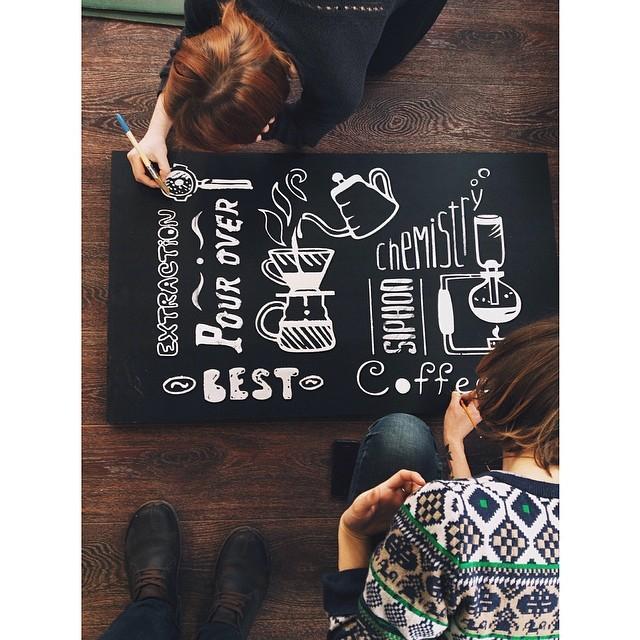 EXTRACTION
POUR OVER
BEST
CHEMISTry
SIPHON
Coffe